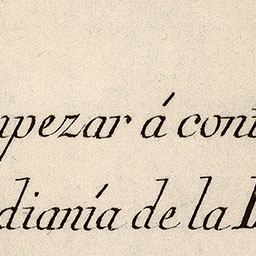 mpezar á cont
dianía de la